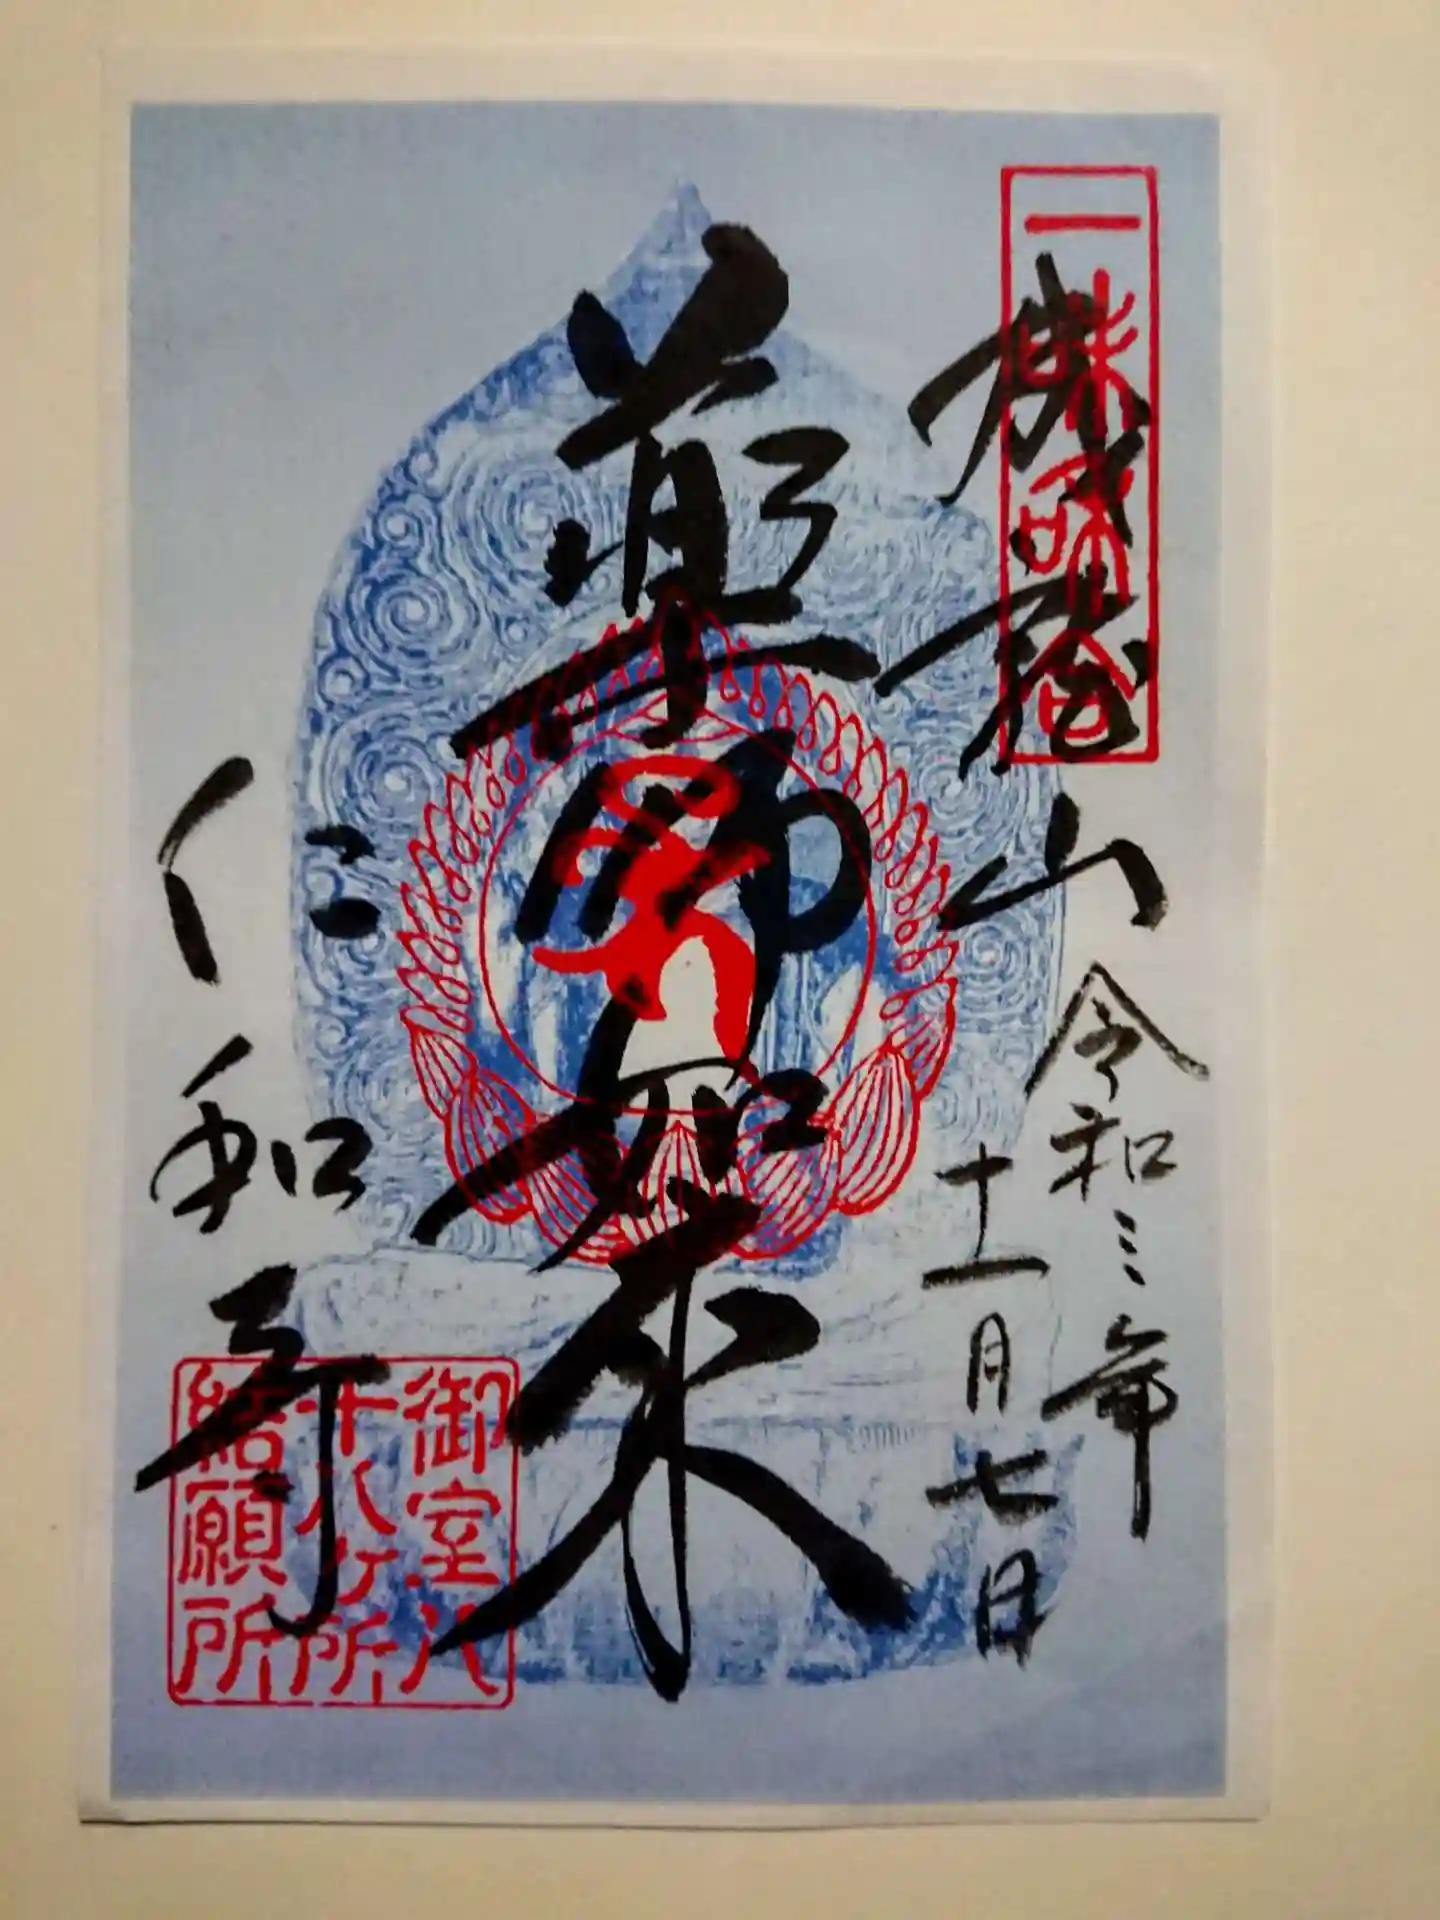 一味和合
山
令和三年
十一月七日
薬師如来
仁和寺
御室八
十八ヶ所
結願所